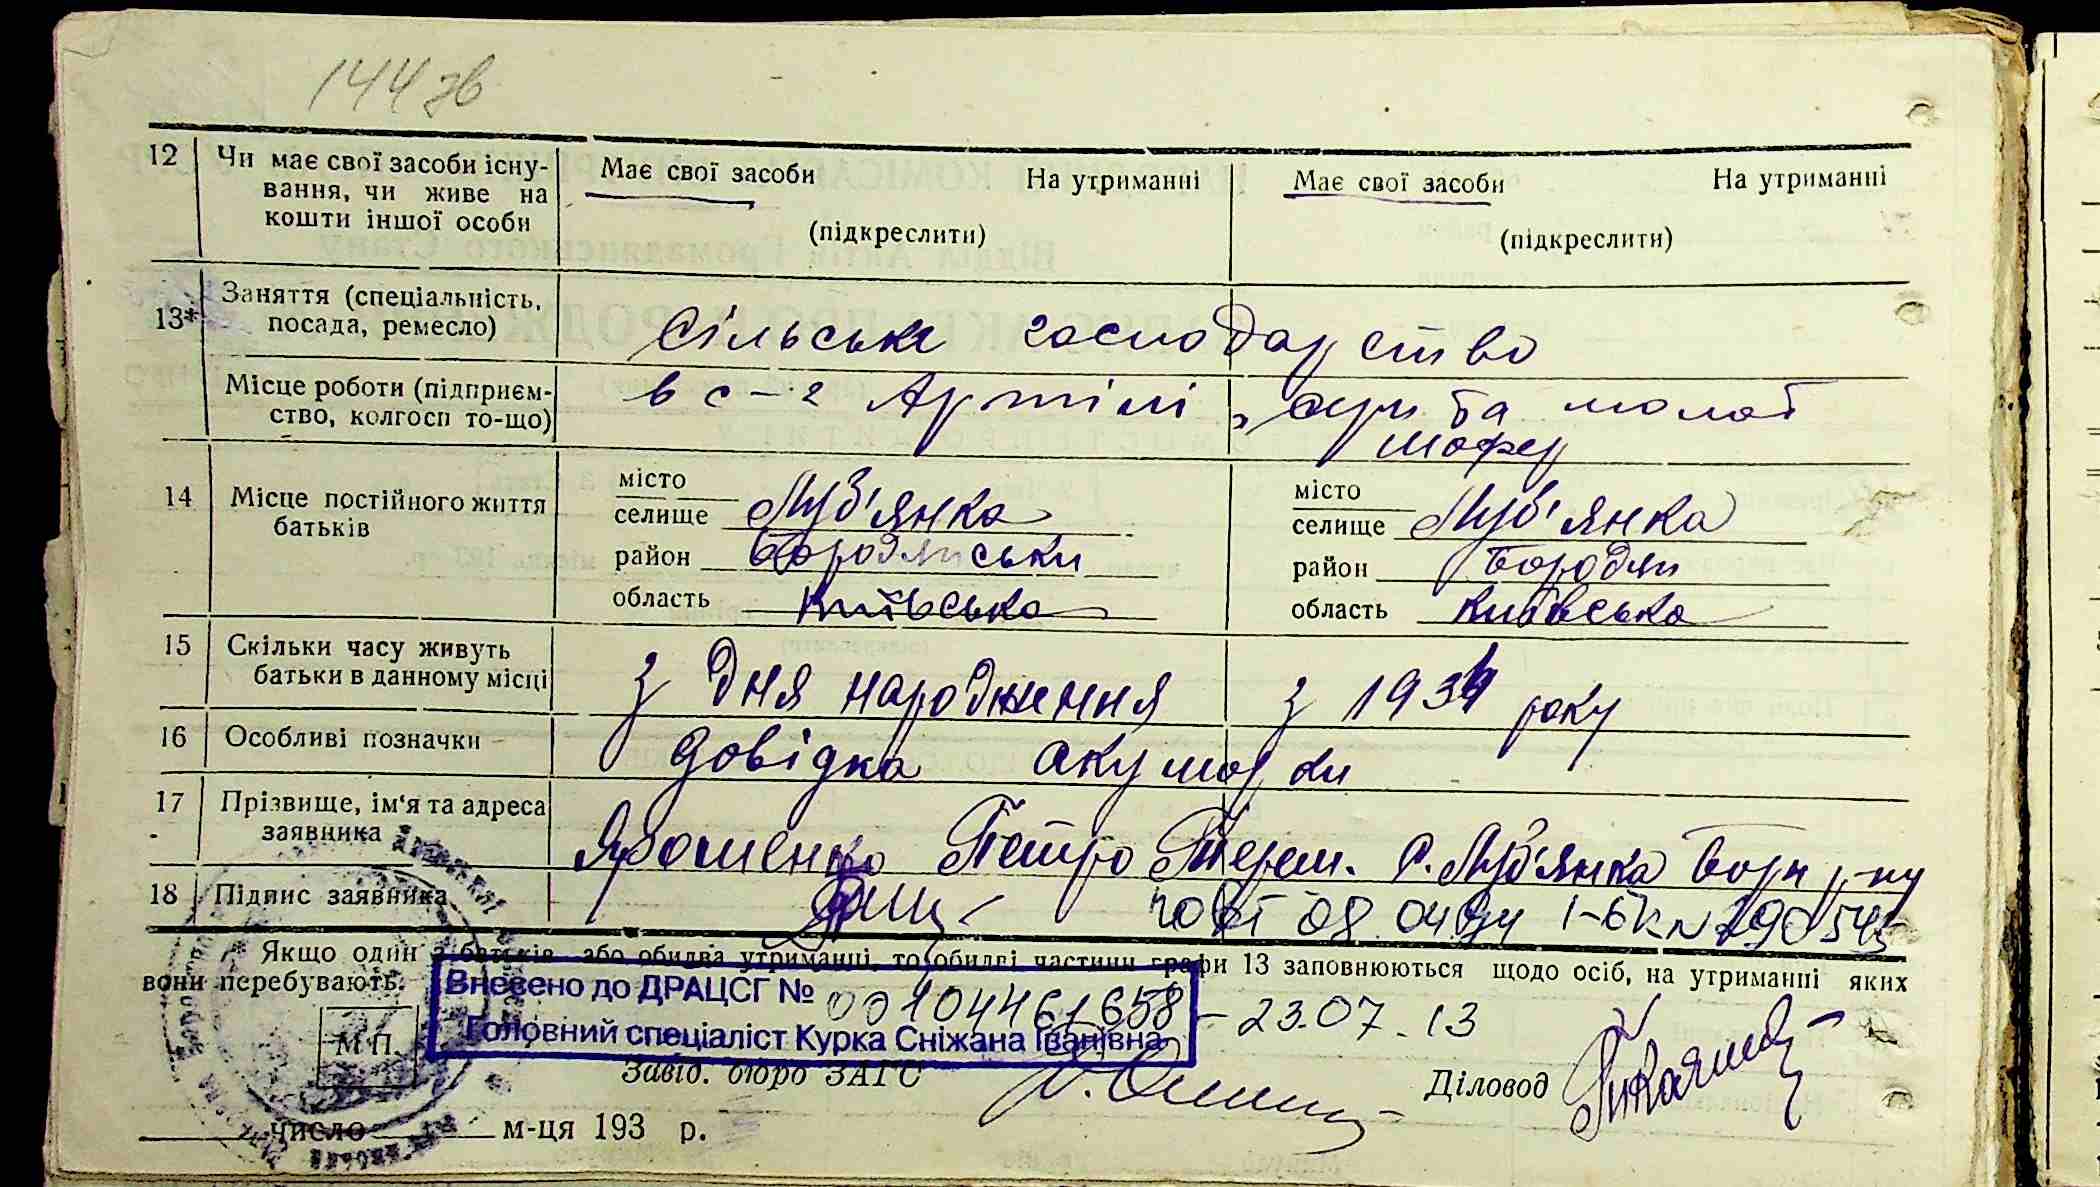 144 зв
12 Чи має свої засоби існу- Має свої засоби На утриманні Має свої засоби На утриманні
вання, чи живе на
кошти іншої особи (підкреслити) (підкреслити)
13* Заняття (спеціальність, посада, ремесло) Сільське господарство
Місце роботи (підприєм- в с-г Артілі „серп та молот
ство, колгосп то-що) шофер
14 Місце постійного життя батьків
місто місто
селище Луб'янка селище Луб'янка
район Бородянськи район Бородян
область Київська область Київська
15 Скільки часу живуть
батьки в данному місці з дня народження з 1934 року
16 Особливі позначки довідка акушорки
17 Прізвище, ім'я та адреса
заявника Ярошенко Петро Терем. с. Луб'янка Бор р-ну
18 Підпис заявника 08.04 1-БК № 190545
Якщо один з батьків, або обидва утриманні, то обидві частини графи 13 заповнюються щодо осіб, на утриманні яких
вони перебувають.
Внесено до ДРАЦСГ № 00104461658 - 23.07.13
Головний спеціаліст Курка Сніжана Іванівна
М.П.
Завід. бюро ЗАГС Діловод
число м-ця 193 р.